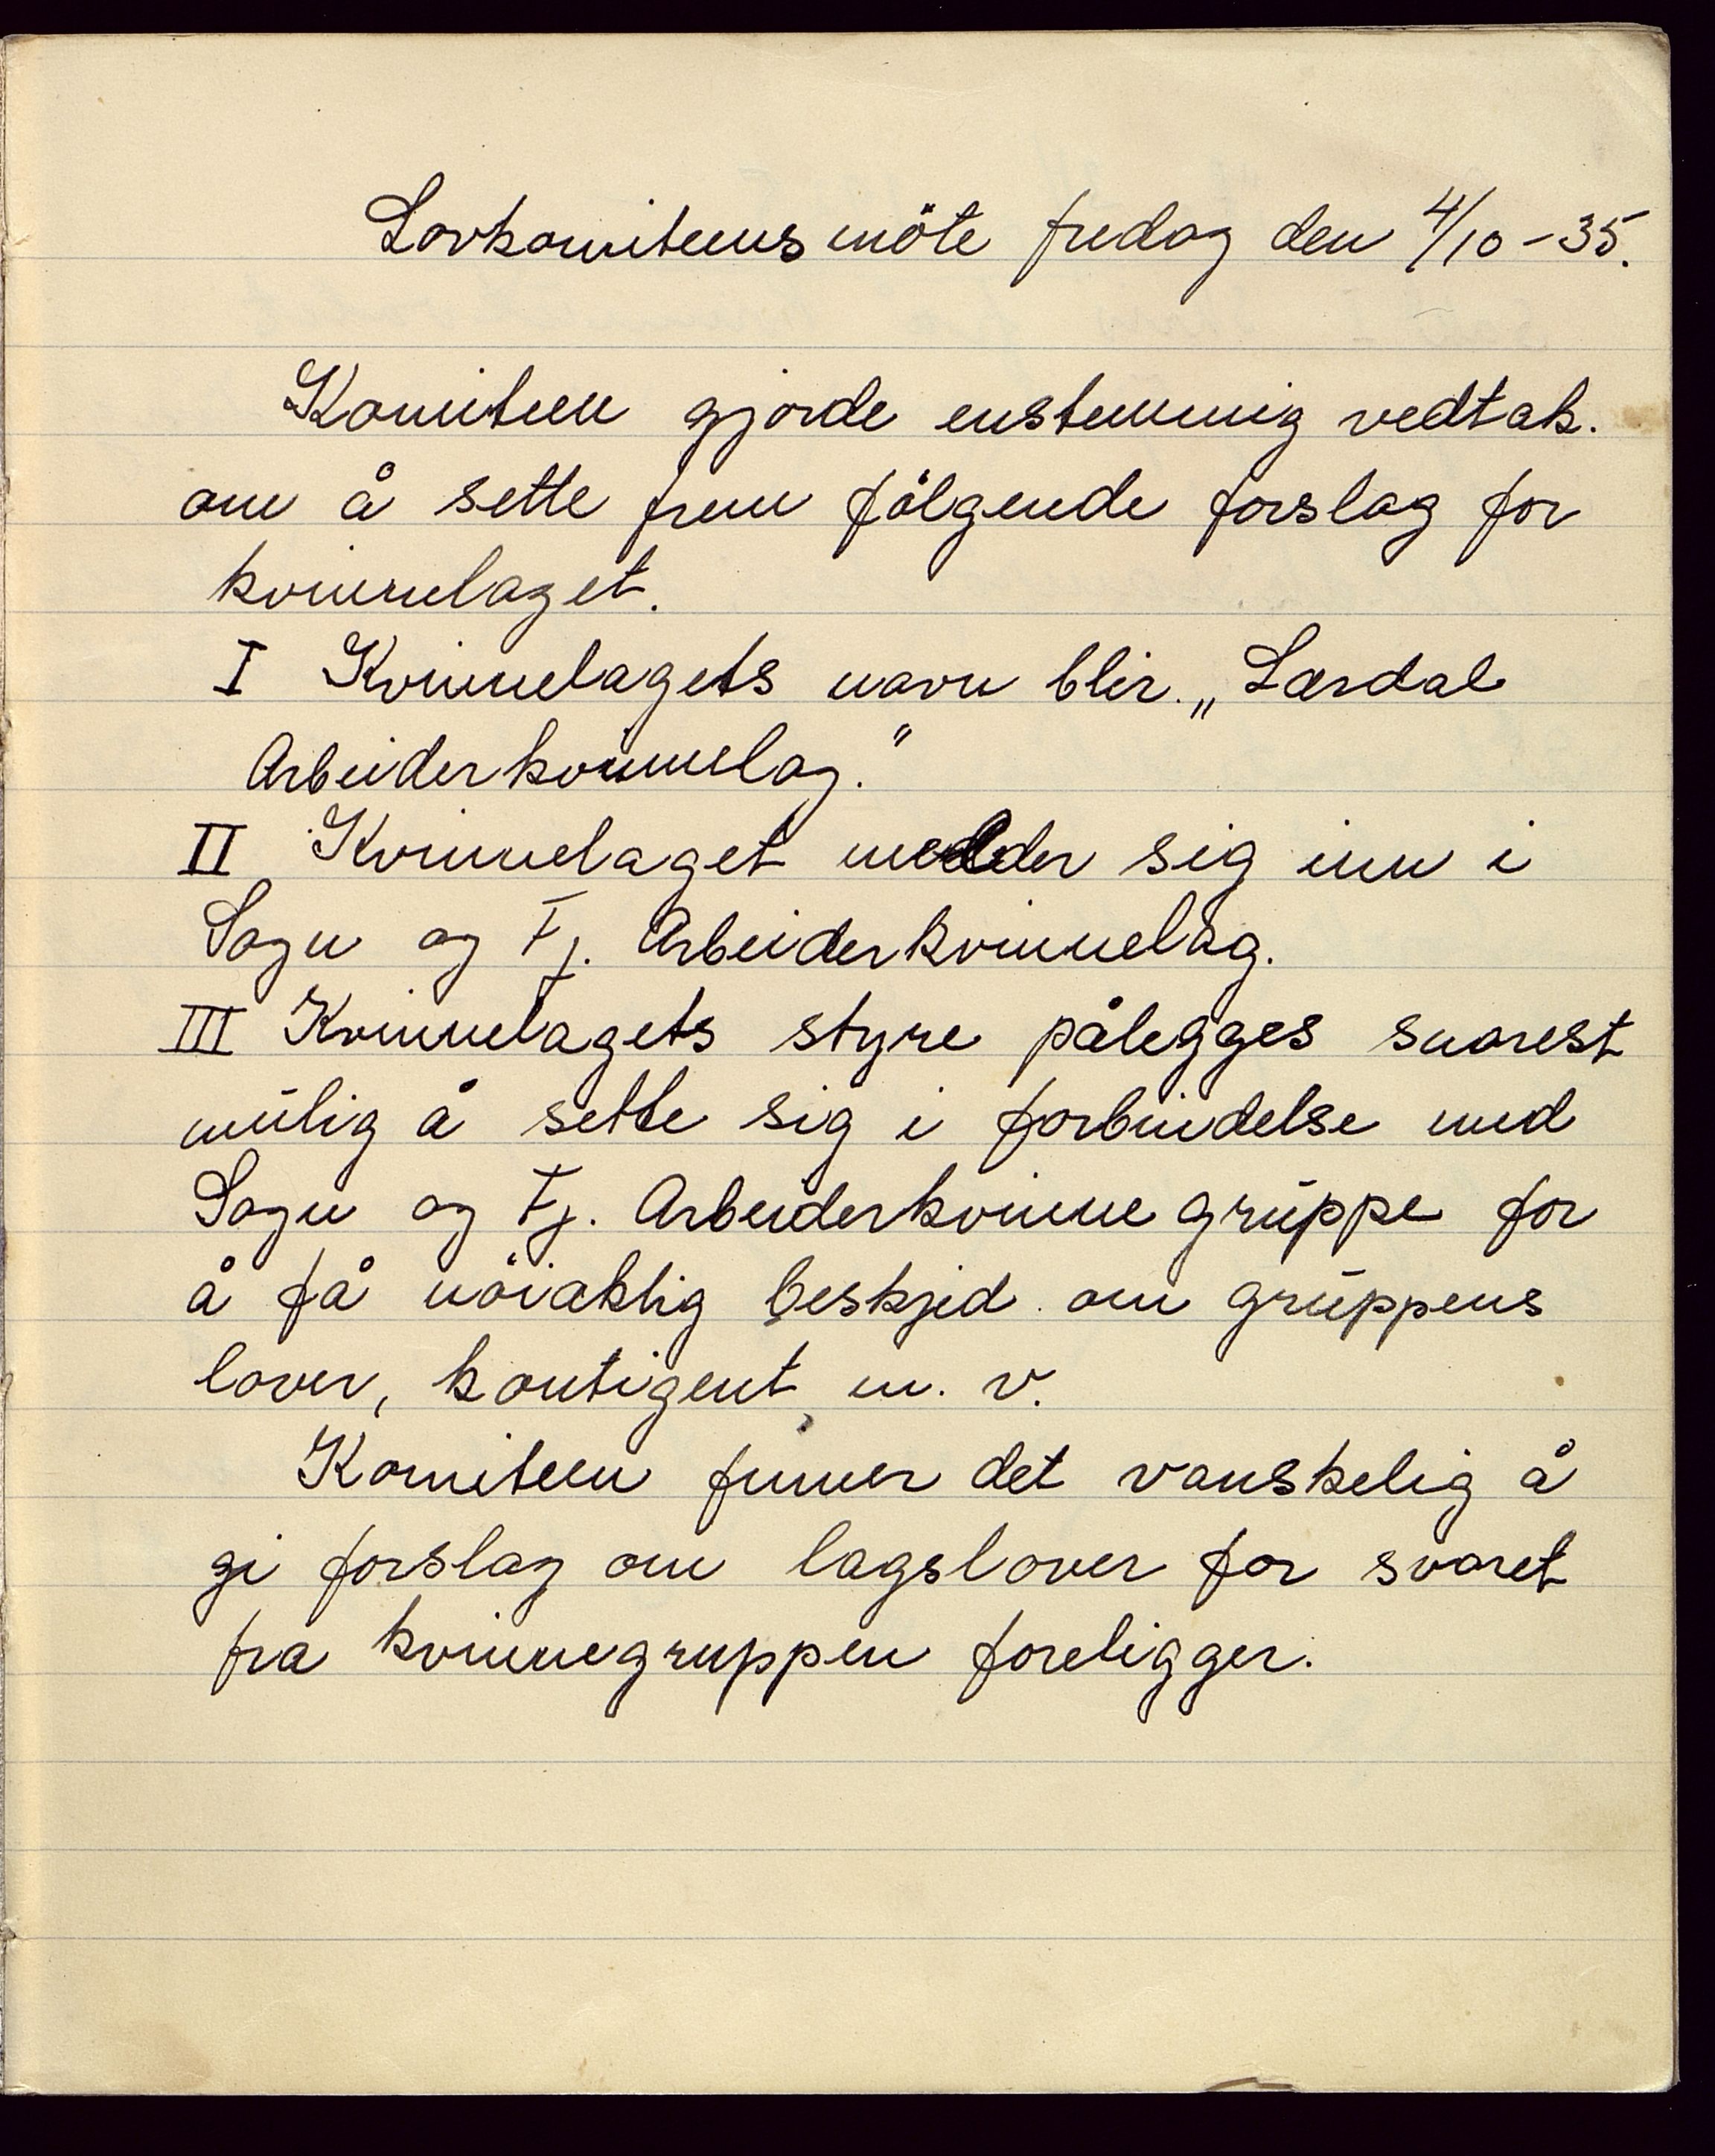 Lovkomiteens möte fredag den 4/10-35.
Komiteen gjorde enstemmig vedtak.
om å sette frem fölgende forslag for
kvinnelaget.
I Kvinnelagets navn blir „Lærdal
Arbeiderkvinnelag."
II Kvinnelaget melder sig inn i
Sogn og Fj. Arbeiderkvinnelag.
III Kvinnelagets styre pålegges snarest
mulig å sette sig i forbindelse med
Sogn og Fj. Arbeiderkvinnegruppe for
å få nöiaktig beskjed om gruppens
lover, kontigent m. v.
Komiteen finner det vanskelig å
gi forslag om lagslover for svaret
fra kvinnegruppen foreligger.